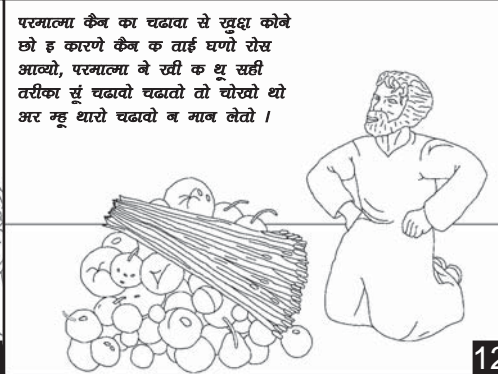 परमात्मा कैन का चढावा से खुद्दा कोने
छो इ कारणे कैन क ताई घणो रोस
आव्यो, परमात्मा ने रवी क थू सही
तरीका सूं चढावो चढातो तो चोखो थो
अर म्हू थारो चढावो न मान लेतो ।
12